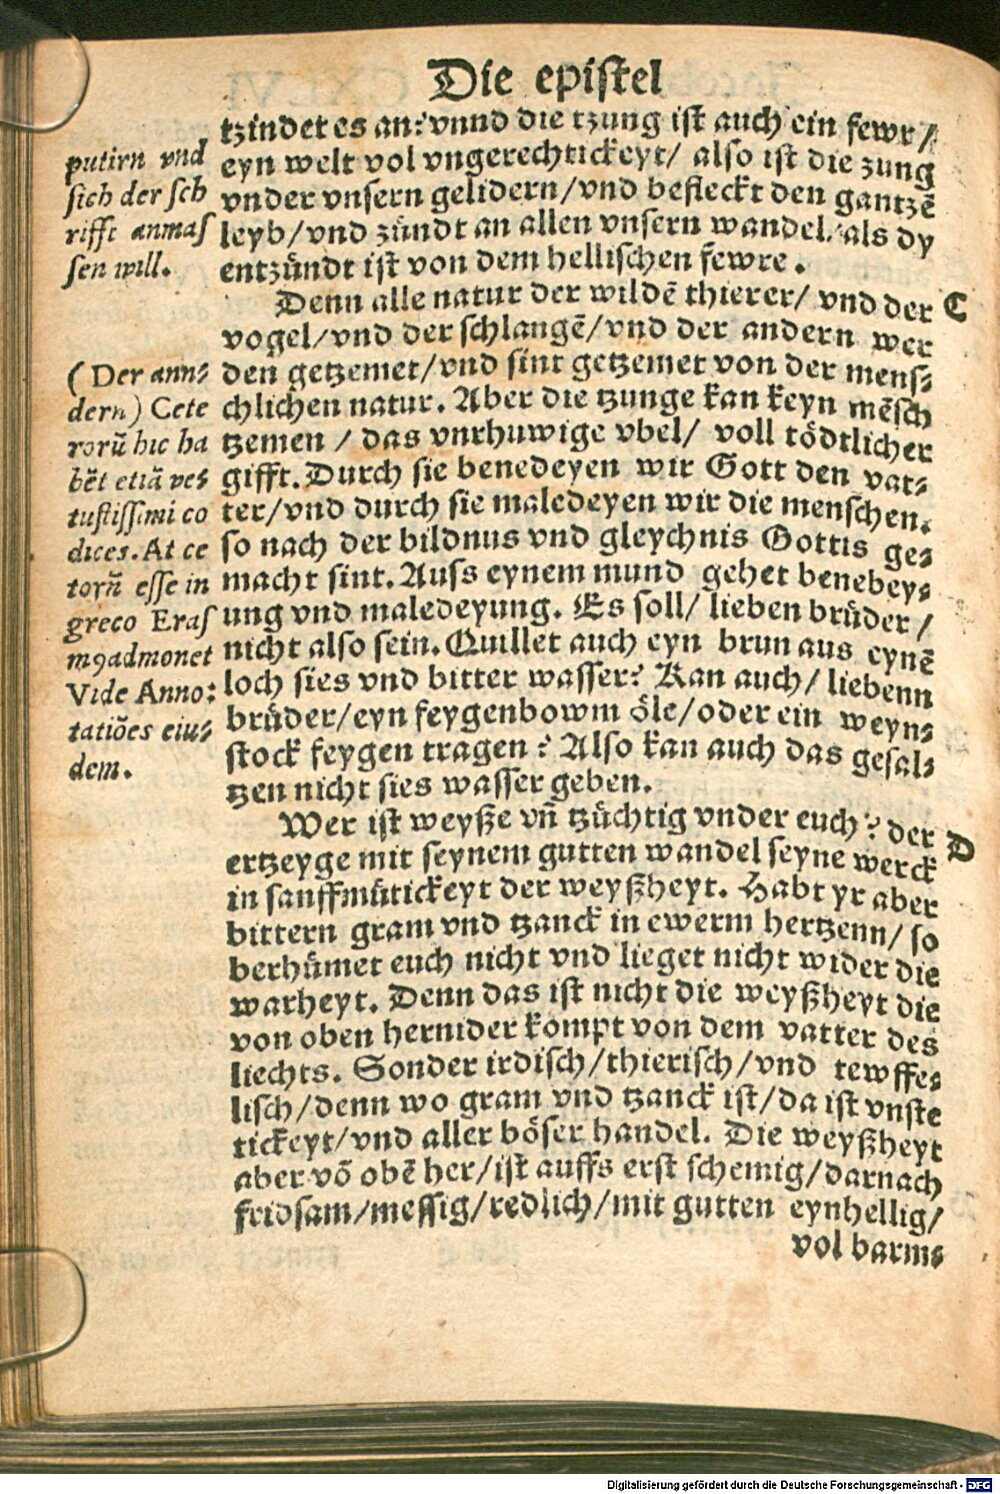 Die epistel
tzindet es an: vnnd die tzung ist auch ein fewr /
eyn welt vol vngerechtickeyt/ also ist die zung
vnder vnsern gelidern/vnd befleckt den gantzē
leyb/vnd zündt an allen vnsern wandel/als dy
entzündt ist von dem hellischen fewre.
Denn alle natur der wildē thierer/ vnd der
vogel/vnd der schlangē/vnd der andern wer
den getzemet/vnd sint getzemet von der mens⸗
chlichen natur. Aber die tzunge kan keyn mēsch
tzemen / das vnrhuwige vbel/ voll tödtlicher
gifft. Durch sie benedeyen wir Gott den vat⸗
ter/vnd durch sie maledeyen wir die menschen.
so nach der bildnus vnd gleychnis Gottis ge⸗
macht sint. Auss eynem mund gehet benebey⸗
ung vnd maledeyung. Es soll/ lieben brüder /
nicht also sein. Quillet auch eyn brun aus eynē
loch sies vnd bitter wasser? Kan auch/ liebenn
brüder/eyn feygenbowm öle/oder ein weyn⸗
stock feygen tragen? Also kan auch das gesal⸗
tzen nicht sies wasser geben.
Wer ist weyße vn̄ tzüchtig vnder euch? der
ertzeyge mit seynem gutten wandel seyne werck
in sanffmütickeyt der weyßheyt. Habt yr aber
bittern gram vnd tzanck in ewerm hertzenn/ so
berhümet euch nicht vnd lieget nicht wider die
warheyt. Denn das ist nicht die weyßheyt die
von oben hernider kompt von dem vatter des
liechts. Sonder irdisch/thierisch/vnd tewffe⸗
lisch/denn wo gram vnd tzanck ist/da ist vnste
tickeyt/vnd aller böser handel. Die weyßheyt
aber vō obē her/ist auffs erst schemig/darnach
fridsam/messig/redlich/mit gutten eynhellig/
vol barm⸗
putirn vnd
sich der sch
rifft anmas
sen will.
(Der ann⸗
dern) Cete
rorū hic ha
bēt etiā ve⸗
tustissimi co
dices. At ce
torū esse in
greco Eras
mꝯ admonet
Vide Anno:
tatiōes eiu⸗
dem.
C
D
Digitalisierung gefördert durch die Deutsche Forschungsgemeinschaft - DFG